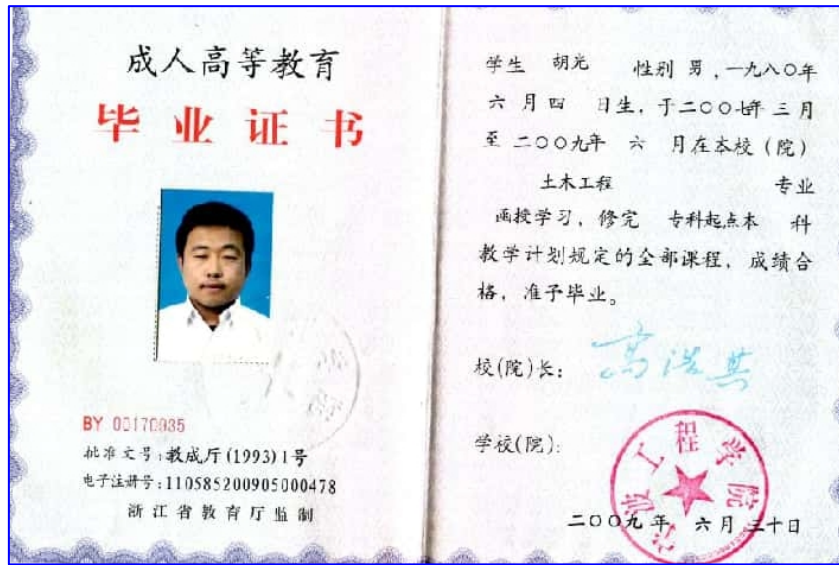 成人高等教育
毕业证书
BY 00170935
批准文号:教成厅(1993)1号
电子注册号:110585200905000478
浙江省教育厅监制
学生 胡光 性别 男,一九八〇年
六月四 日生,于二〇〇七年 三月
至 二〇〇九年 六 月在本校(院)
土木工程 专业
函授学习,修完 专科起点本 科
教学计划规定的全部课程,成绩合
格,准予毕业。
校(院)长: 高浩其
学校(院):
宁波工程学院
二〇〇九年 六月三十日